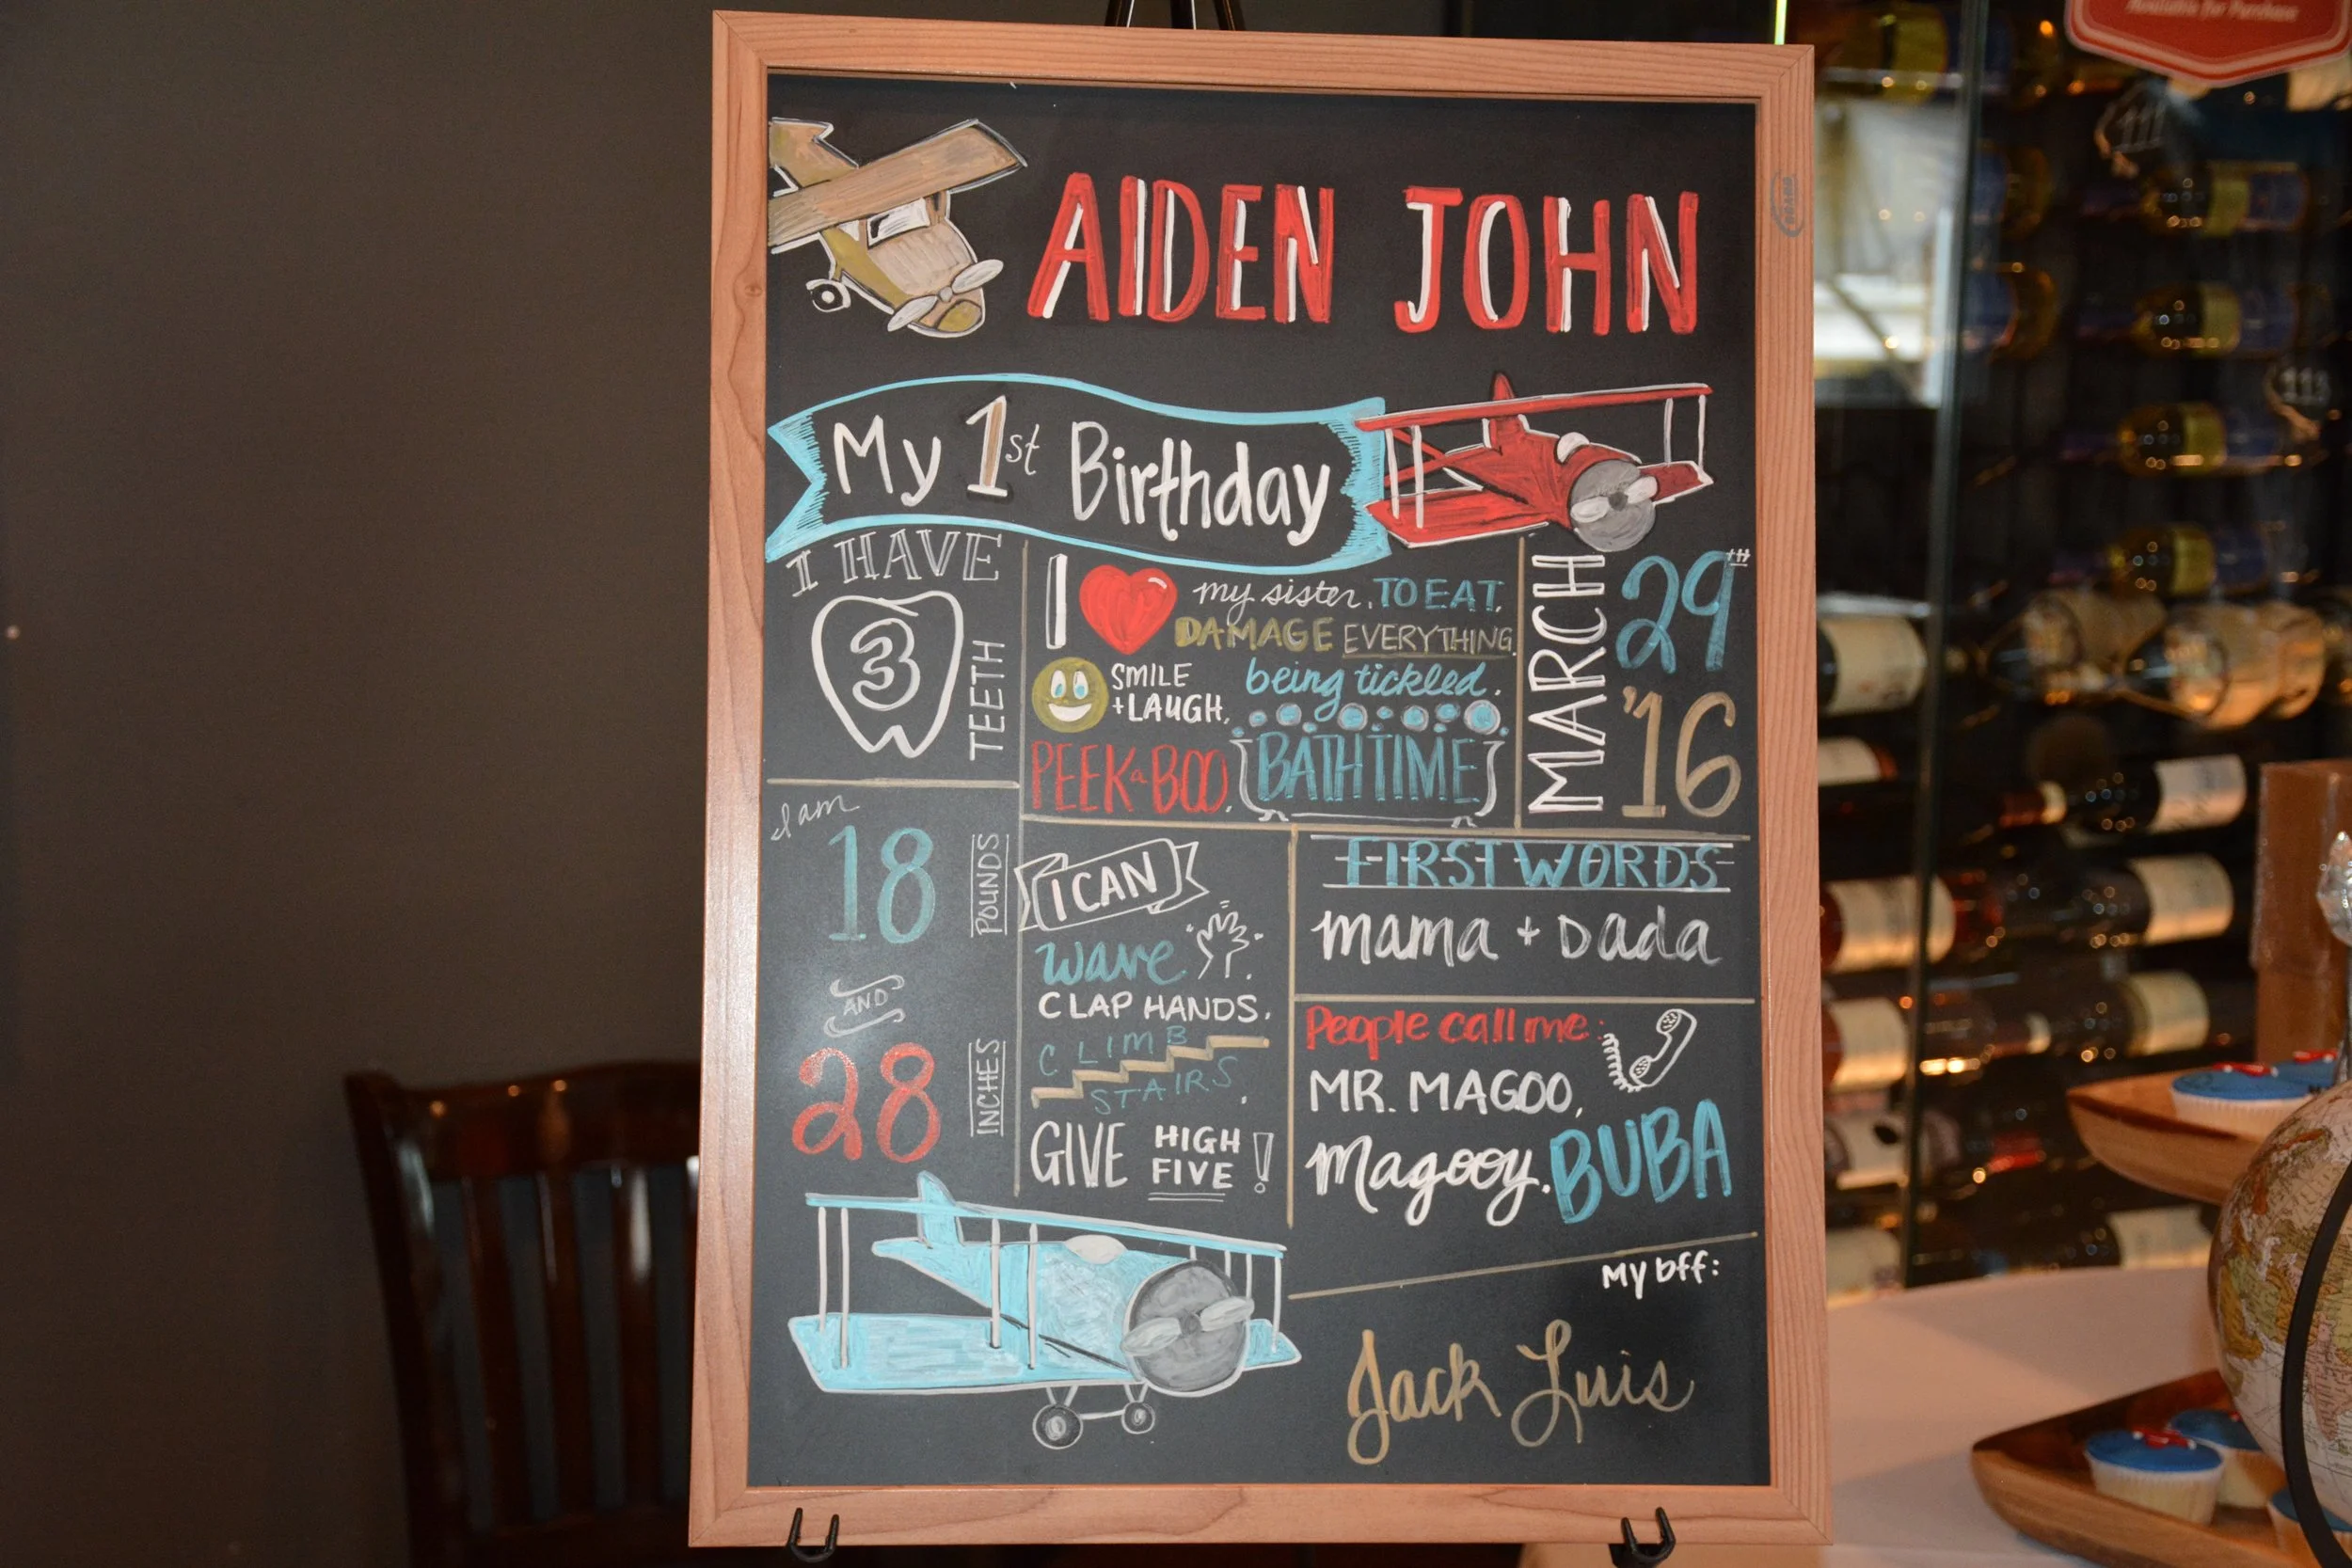 Available for Purchase
AIDEN JOHN
My 1st Birthday
I HAVE
3
TEETH
I
my sister, TO EAT,
DAMAGE EVERYTHING,
SMILE
+ LAUGH,
being tickled,
PEEK a BOO,
BATHTIME
MARCH
29TH
'16
I am
18
POUNDS
AND
28
INCHES
I CAN
wave
CLAP HANDS,
CLIMB
STAIRS,
GIVE HIGH
FIVE!
FIRST WORDS
mama + Dada
People call me:
MR. MAGOO,
Magooy, BUBA
My bff:
Jack Luis
111
113